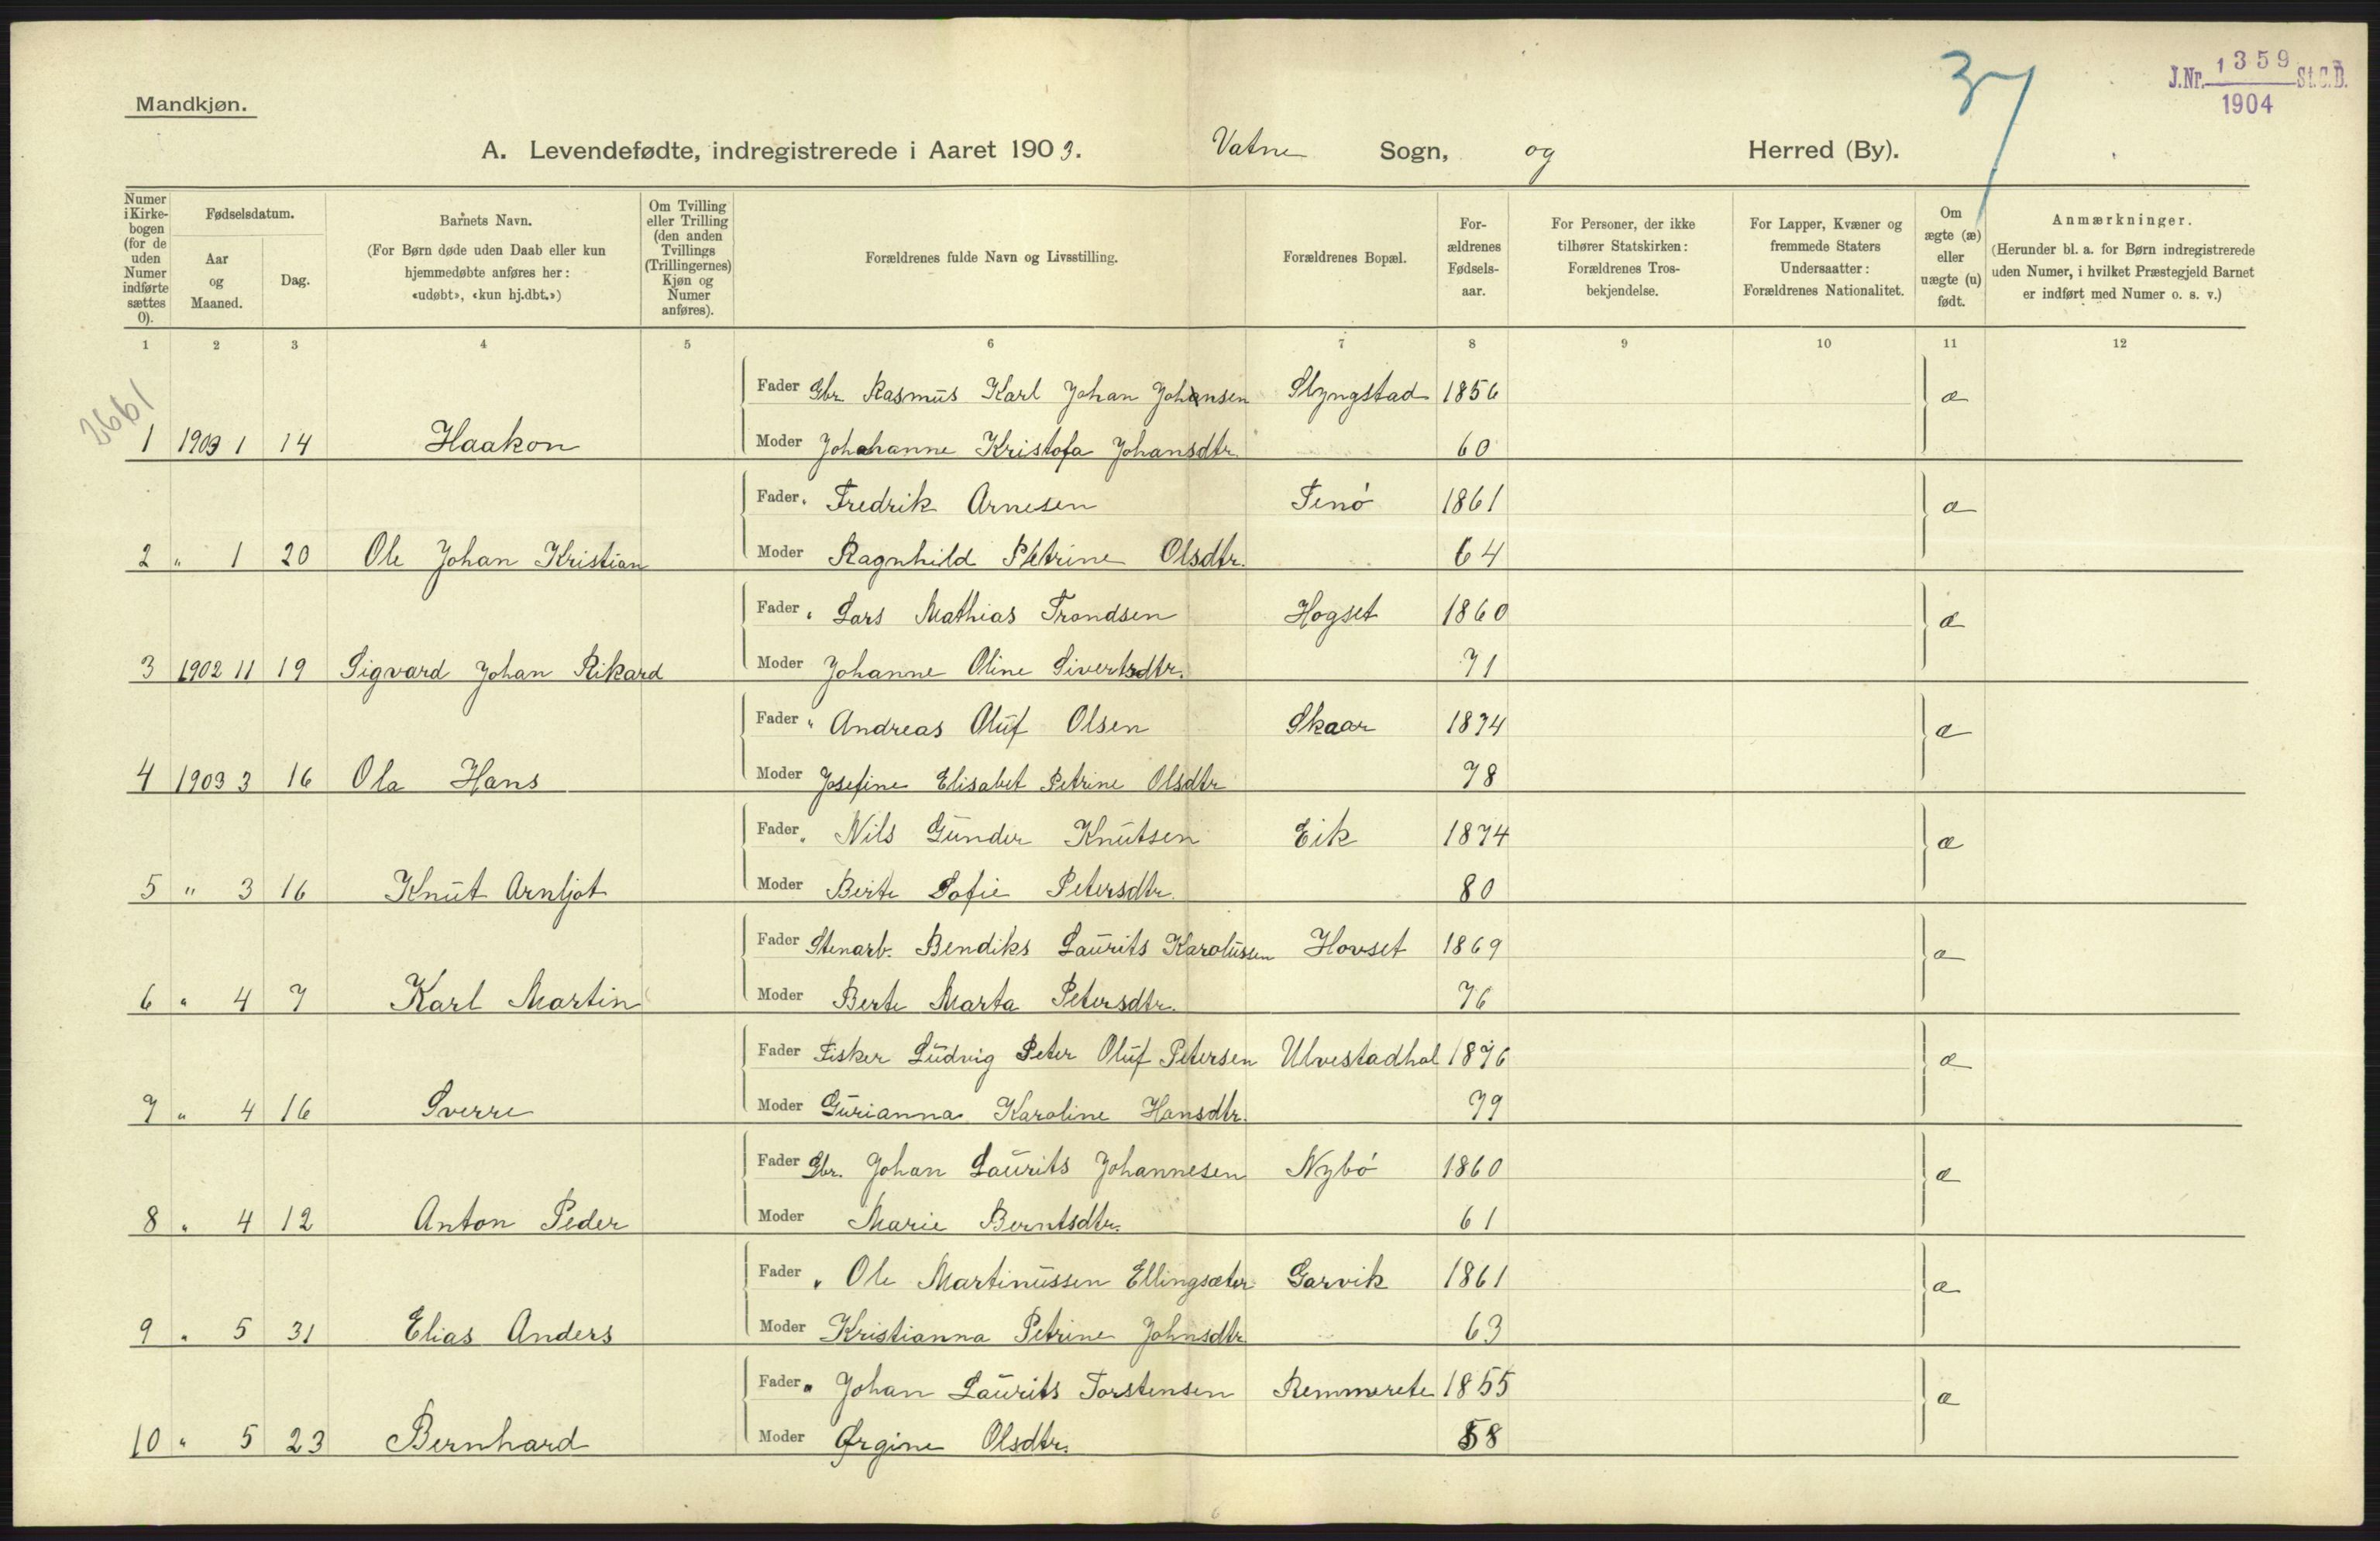 37
J.Nr. 1359 St.C.B.
1904
Mandkjøn.
A. Levendefødte, indregistrerede i Aaret 1903. Vatne Sogn, og Herred (By).
Numer i Kirkebogen (for de uden Numer indførte sættes 0).
Fødselsdatum.
Aar og Maaned.
Dag.
Barnets Navn.
(For Børn døde uden Daab eller kun
hjemmedøbte anføres her:
«udøbt», «kun hj.dbt.»)
Om Tvilling
eller Trilling
(den anden
Tvillings
(Trillingernes)
Kjøn og
Numer
anføres).
Forældrenes fulde Navn og Livsstilling.
Forældrenes Bopæl.
For-
ældrenes
Fødsels-
aar.
For Personer, der ikke
tilhører Statskirken:
Forældrenes Tros-
bekjendelse.
For Lapper, Kvæner og
fremmede Staters
Undersaatter:
Forældrenes Nationalitet.
Om
ægte (æ)
eller
uægte (u)
født.
Anmærkninger.
(Herunder bl. a. for Børn indregistrerede
uden Numer, i hvilket Præstegjeld Barnet
er indført med Numer o. s. v.)
1 2 3 4 5 6 7 8 9 10 11 12
2661
Fader Gbr Rasmus Karl Johan Johansen Slyngstad 1856 æ
1 1903 1 14 Haakon Moder Johahanne Kristofa Johansdtr. 60
Fader " Fredrik Arnesen Tenø 1861 æ
2 " 1 20 Ole Johan Kristian Moder Ragnhild Petrine Olsdtr. 64
Fader " Lars Mathias Trondsen Hogset 1860 æ
3 1902 11 19 Sigvard Johan Rikard Moder Johanne Oline Sivertsdtr. 71
Fader " Andreas Oluf Olsen Skaar 1874 æ
4 1903 3 16 Ola Hans Moder Josefine Elisabet Petrine Olsdtr 78
Fader " Nils Gunder Knutsen Eik 1874 æ
5 " 3 16 Knut Arnljot Moder Berte Sofie Petersdtr. 80
Fader Stenarb. Bendiks Laurits Karolussen Hovset 1869 æ
6 " 4 7 Karl Martin Moder Berte Marta Petersdtr. 76
Fader Fisker Ludvig Peter Oluf Petersen Ulvestadhol 1876 æ
7 " 4 16 Sverre Moder Gurianna Karoline Hansdtr. 79
Fader Gbr. Johan Laurits Johannesen Nybø 1860 æ
8 " 4 12 Anton Peder Moder Marie Berntsdtr. 61
Fader " Ole Martinussen Ellingsæter Garvik 1861 æ
9 " 5 31 Elias Anders Moder Kristianna Petrine Johnsdtr 63
Fader " Johan Laurits Torstensen Remmerete 1855 æ
10 " 5 23 Bernhard Moder Ørgine Olsdtr. 58